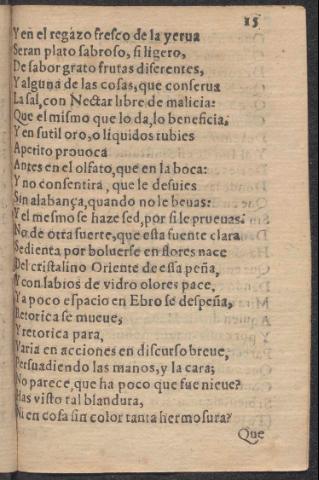 15
Y en el regazo fresco de la yerua
Seran plato sabroso, si ligero,
De sabor grato frutas diferentes,
Y alguna de las cosas, que conserua
La sal, con Nectar libre de malicia:
Que el mismo que lo da, lo beneficia.
Y en sutil oro, o liquidos rubies
Apetito prouoca
Antes en el olfato, que en la boca:
Y no consentirà, que le desuies
Sin alabança, quando no le beuas:
Y el mesmo se haze sed, por si le prueuas.
No de otra suerte, que esta fuente clara
Sedienta por boluerse en flores nace
Del cristalino Oriente de essa peña,
Y con labios de vidro olores pace,
Y a poco espacio en Ebro se despeña,
Retorica se mueue,
Y retorica para,
Varia en acciones en discurso breue,
Persuadiendo las manos, y la cara;
No parece, que ha poco que fue nieue?
Has visto tal blandura,
Ni en cosa sin color tanta hermosura?
Que